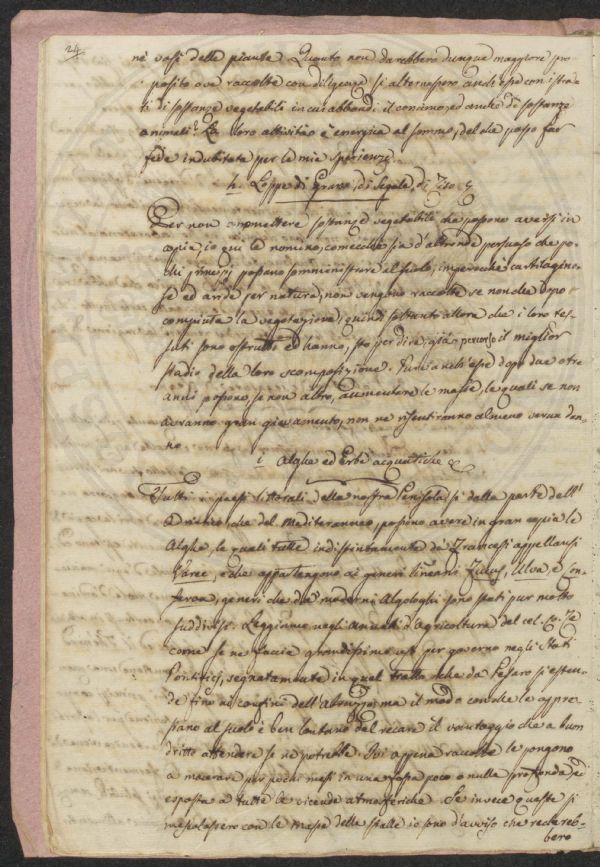 24
ne' vasi delle piante. Quanto non darebbero dunque maggiore pro-
posito ove raccolte con diligenza si alternassero anch'esse con istra-
ti di sostanze vegetabili in cui abbondi il concime, ed anche di sostanze
animali? La loro attività è energica al sommo, del che posso far
fede indubitata per le mie sperienze.
h. Loppe di grano, di segale, di
Per non ommettere sostanze vegetabili che possono aversi in
copia, io qui le nomino, comecché sia d'altronde persuaso che po-
chi principj possano somministrare al suolo, imperocché cartilagino-
se ed aride per natura, non vengono raccolte se non che dopo
compiuta la vegetazione, quindi soltanto allora che i loro tes-
suti sono ostrutti ed hanno, sto per dire, già percorso il miglior
stadio della loro scomposizione. Pure anch'esse dopo due o tre
anni possono, se non altro, aumentare le masse, le quali se non
avranno gran giovamento, non ne risentiranno almeno verun dan-
no.
i Alghe ed Erbe acquatiche
Tutti i paesi littorali della nostra Penisola, sì dalla parte dell'
Adriatico, che del Mediterraneo, possono avere in gran copia le
Alghe, le quali tutte indistintamente da' Francesi appellansi
Varec, e che appartengono ai generi linneani Fucus, Ulva e Con-
ferva, generi che da' moderni Algologhi sono stati pur molto
suddivisi. Leggiamo negli Annali d'Agricoltura del cel. Re
come se ne faccia grandissimo uso per governo negli Stati
Pontificj, segnatamente in quel tratto che da Pesaro si esten-
de fino ai confini dell'Abruzzo; ma il modo con che le appre-
stano al suolo è ben lontano dal recare il vantaggio che a buon
dritto attendere se ne potrebbe. Ivi appena raccolte le pongono
a macerare per pochi mesi in una fossa poco o nulla profonda, ed
esposta a tutte le vicende atmosferiche. Se invece queste si
mescolassero con le masse delle stalle io sono d'avviso che recereb-
bero